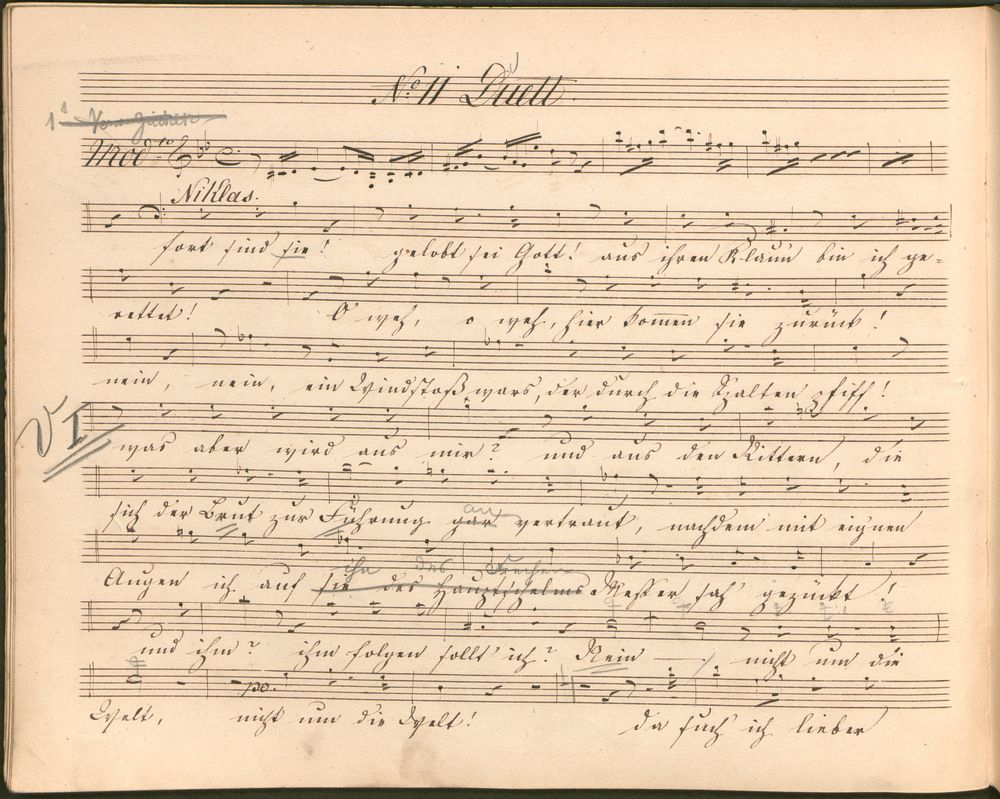 No 11 Duett
1s Vorzeichen
Modto
Niklas.
fort sind sie! gelobt sei Gott! aus ihren Klaun bin ich ge=
rettet! O weh, o weh, hier kommen sie zurück!
nein, nein, ein Windstoß wars, der durch die Spalten pfiff!
VI
was aber wird aus mir? und aus den Rittern, die
an
sich der Brut zur Führung gar vertraut, nachdem mit eignen
ihn des Frechen
Augen ich auf sie des Hauptschelms Messer sah gezückt!
und ihm? ihm folgen sollt' ich? Nein nicht um die
po.
Welt, nicht um die Welt! da such ich lieber